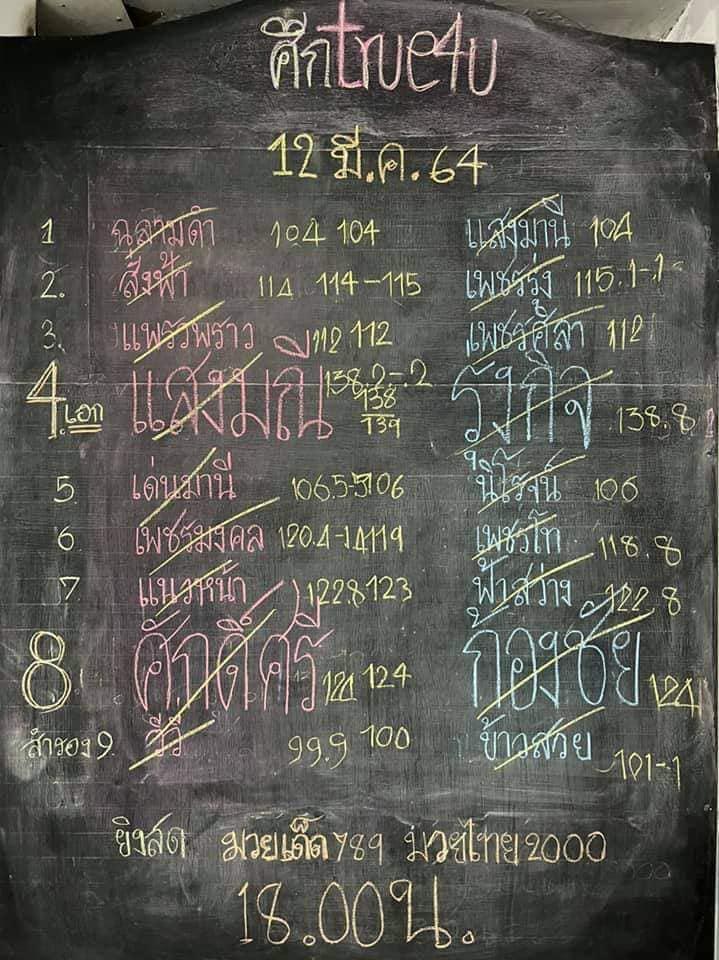 ศึกtrue4u
12 มี.ค.64
1 ฉลามดำ 104 104 แสงมานี 104
2. สิงฟ้า 114 114-115 เพชรรุ่ง 115.1-.1
3. แพรวพราว 112 112 เพชรศิลา 112
4.เอก แสงมณี 138.2-.2 138 139 รังกิจ 138.8
5 เด่นมานี 106.5-.5 106 นิโรจน์ 106
6 เพชรมงคล 120.4-1.4 119 เพชรโท 118.8
7 แนวหน้า 122.8 123 ฟ้าสว่าง 122.8
8 ศักดิ์ศรี 124 124 ก้องชัย 124
สำรอง 9. วีวี 99.9 100 ข้าวสวย 101-1
ยิงสด มวยเด็ด789 มวยไทย2000
18.00น.